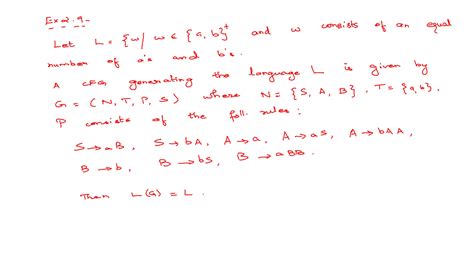 Ex 2.9.
Let L = {w / w ∈ {a, b}⁺ and w consists of an equal
number of a's and b's.
A CFG generating the language L is given by
G = (N, T, P, S) where N = {S, A, B}, T = {a, b},
P consists of the foll. rules :
S → aB, S → bA, A → a, A → aS, A → bAA,
B → b, B → bS, B → aBB.
Then L(G) = L.